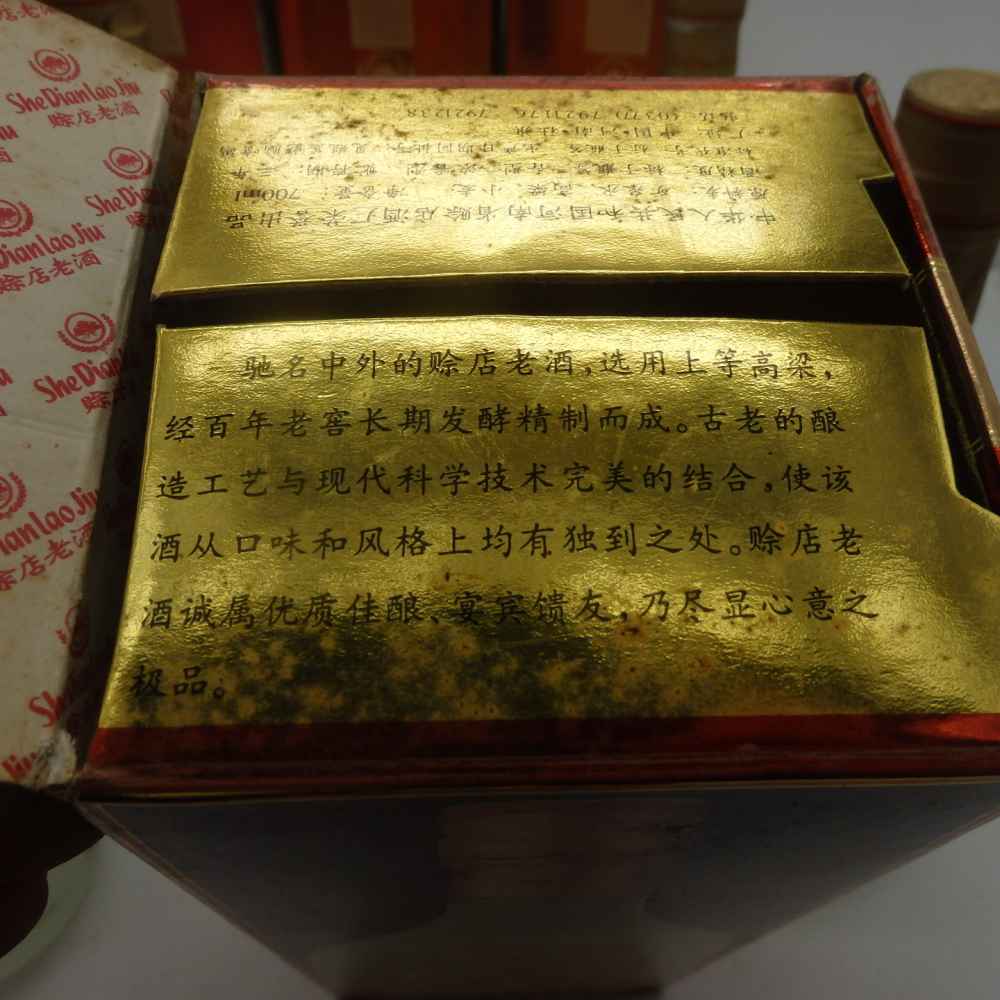 SheDianLaoJiu
赊店老酒
SheDianLaoJiu
赊店老酒
中华人民共和国河南省赊店酒厂荣誉出品
原料: 水、高粱、小麦 净含量: 700ml
厂址: 中国·河南·社旗
电话: (0377) 7921176 7921238
驰名中外的赊店老酒,选用上等高粱,
经百年老窖长期发酵精制而成。古老的酿
造工艺与现代科学技术完美的结合,使该
酒从口味和风格上均有独到之处。赊店老
酒诚属优质佳酿、宴宾馈友,乃尽显心意之
极品。